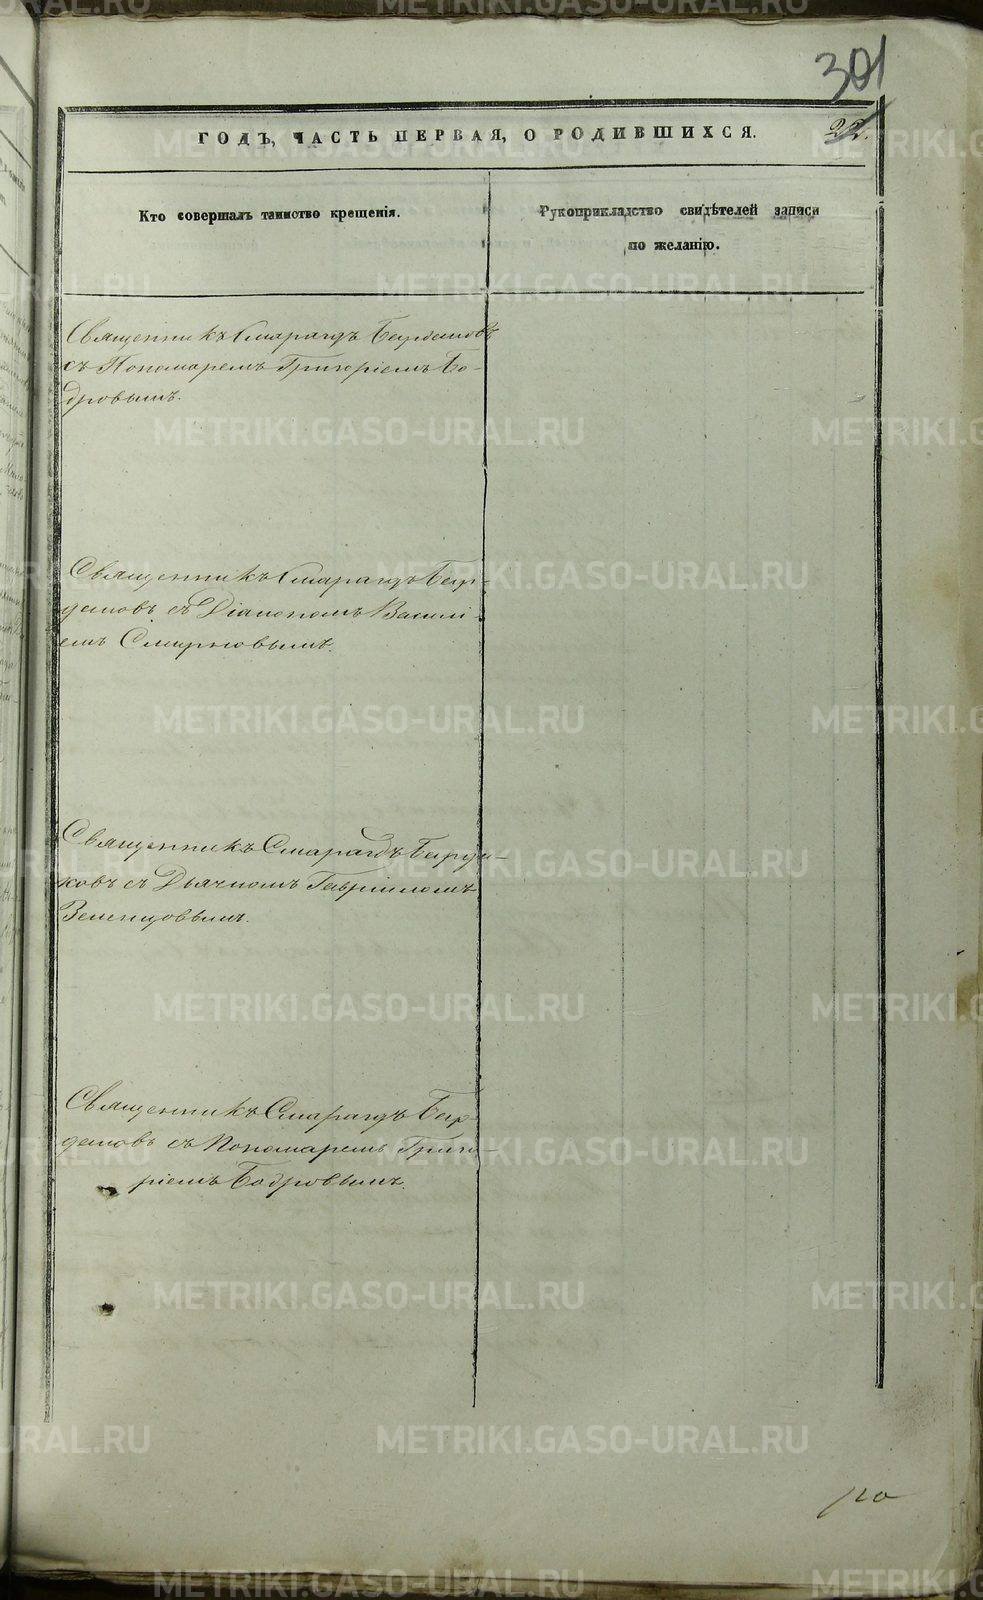 301
22.
ГОДЪ, ЧАСТЬ ПЕРВАЯ, О РОДИВШИХСЯ.
Кто совершалъ таинство крещенія.
Рукоприкладство свидѣтелей записи
по желанію.
Священникъ Смарагдъ
съ Пономаремъ Григоріемъ Бо-
дровымъ.
Священникъ Смарагдъ
съ Діакономъ Василі-
емъ Смирновымъ.
Священникъ Смарагдъ
ковъ съ Дьячкомъ Гавріиломъ
Земенцовымъ.
Священникъ Смарагдъ
съ Пономаремъ Григо-
ріемъ Бодровымъ.
METRIKI.GASO-URAL.RU